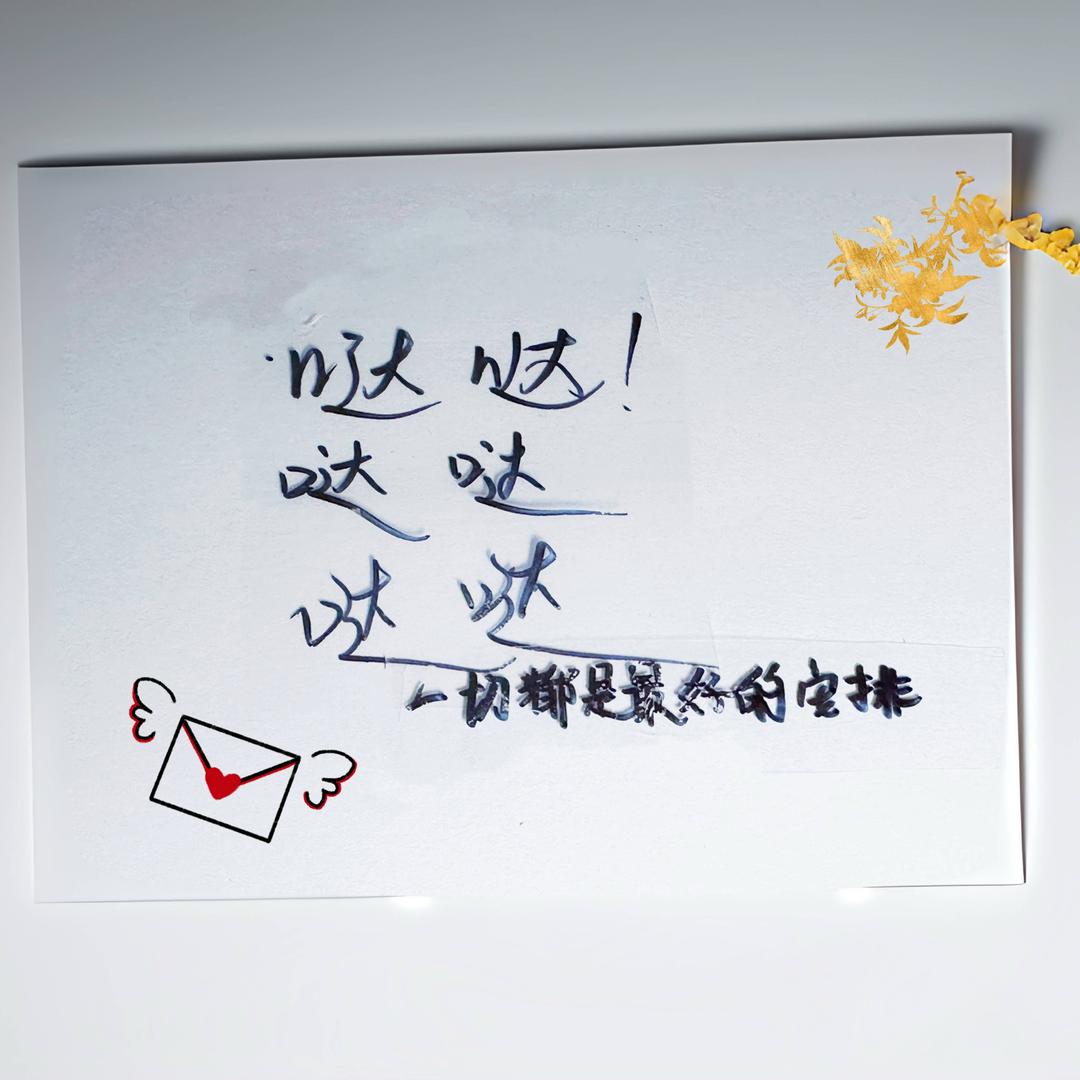 哒哒！
哒哒
哒哒
一切都是最好的安排